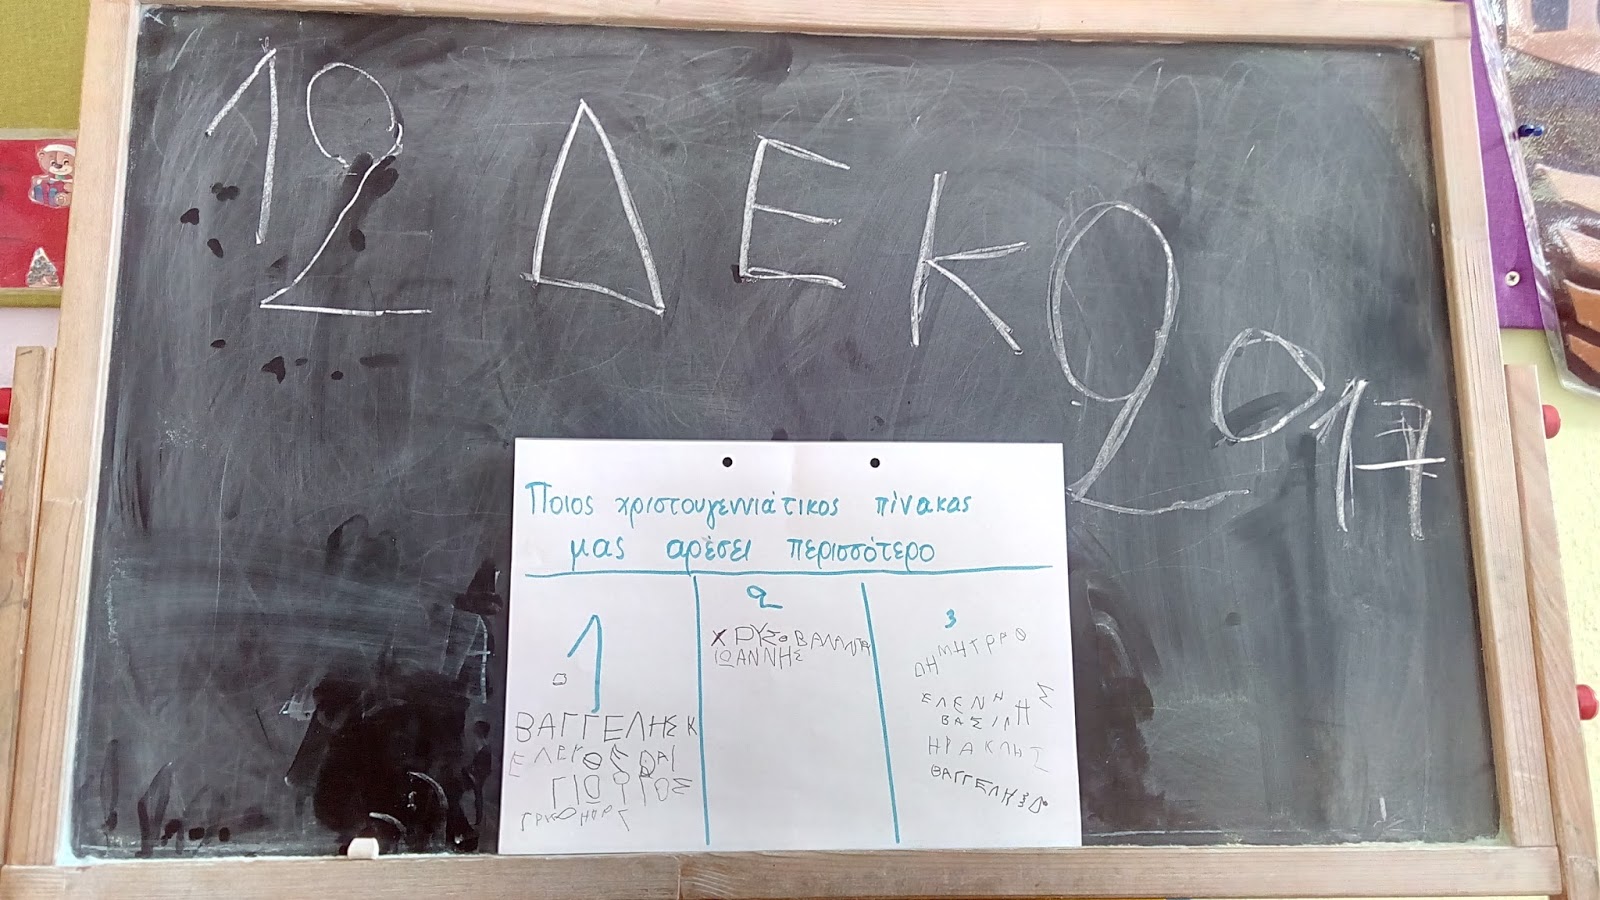 12 ΔΕΚ 2017
Ποιος χριστουγεννιάτικος πίνακας
μας αρέσει περισσότερο
1
ΒΑΓΓΕΛΗΣ Κ
ΓΙΩΡΓΟΣ
2
ΙΩΑΝΝΗΣ
3
ΕΛΕΝΗ
ΒΑΣΙΛΗΣ
ΗΡΑΚΛΗΣ
ΒΑΓΓΕΛΗΣ Δ.